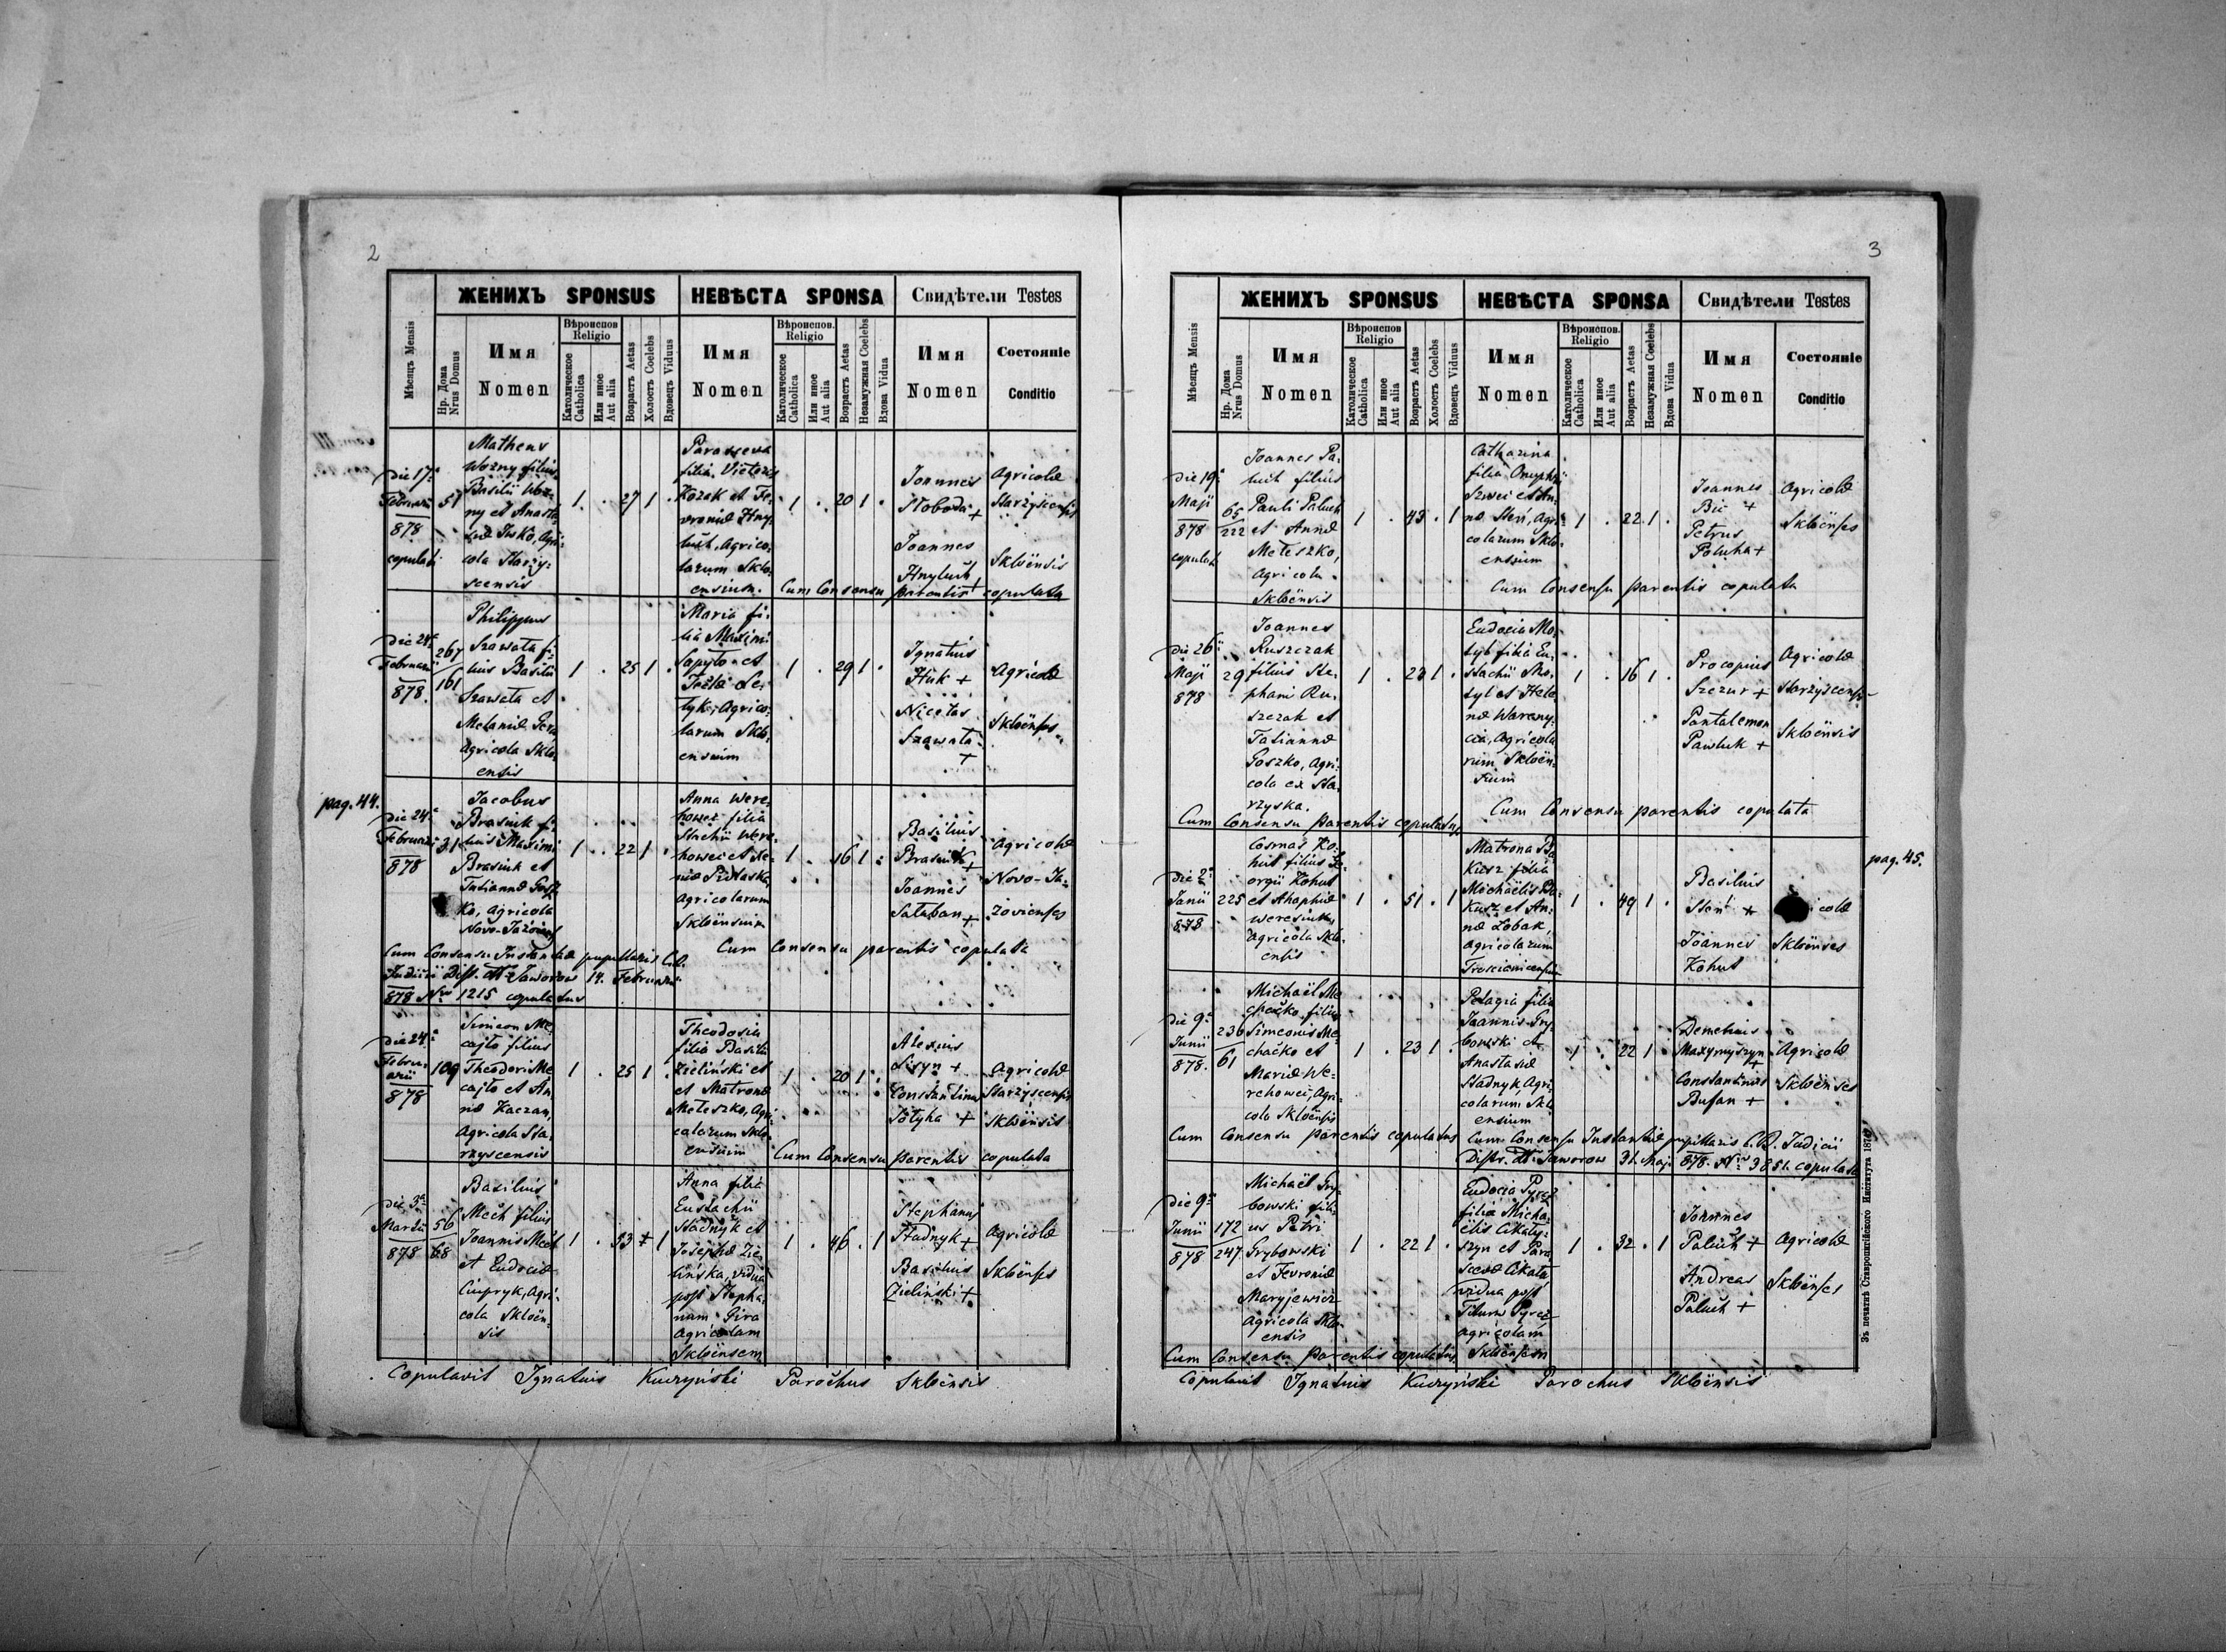 2
ЖЕНИХЪ SPONSUS
НЕВѢСТА SPONSA
Свидѣтели Testes
Мѣсяцъ Mensis
Нр. Дома
Nrus Domus
Имя
Nomen
Вѣроиспов
Religio
Католическое
Catholica
Или иное
Aut alia
Возрастъ Aetas
Холостъ Coelebs
Вдовецъ Viduus
Имя
Nomen
Вѣроиспов.
Religio
Католическое
Catholica
Или иное
Aut alia
Возрастъ Aetas
Незамужная Coelebs
Вдова Vidua
Имя
Nomen
Состояніе
Conditio
Die 17a
Februarii
878
copulati
51
Matheus
Wozny filius
Basilii Woz-
ny et Anasta-
siæ Isko, Agri-
cola Starzy-
scensis
1 . 27 1 .
Parasceva
filia Victoris
Kozak et Fe-
vroniæ Hny-
luch, Agrico-
larum Sklo-
ensium.
1 . 20 1 .
Joannes
Słoboda +
Joannes
Hnyluch +
Agricolæ
Starzyscensis
Skloënsis
Cum Consensu parentis copulata
Die 24a
Februarii
878.
267
161
Philippus
Szawała fi-
lius Basilii
Szawała et
Melaniæ
Agricola Sklo-
ensis
1 . 25 1 .
Maria fi-
lia Maximi
Sopyło et
Teklæ Le-
tyk, Agrico-
larum Sklo-
ensium
1 . 29 1 .
Ignatius
Huk +
Nicetas
Szawała
+
Agricolæ
Skloënses
pag. 44.
Die 24a
Februarii
878
31
Jacobus
Brasiuk fi-
lius Maximi
Brasiuk et
Tatiannæ Gosz-
ko, Agricola
Novo-Jazoviens
1 . 22 1 .
Anna Were-
howei filia
Stachii Were-
howei et Xe-
niæ Pidlaska,
Agricolarum
Skloënsium
1 . 16 1 .
Basilius
Brasiuk +
Joannes
Sałaban +
Agricolæ
Novo-Ja-
zovienses
Cum Consensu Instantiæ pupillaris C. R.
Judicii Distr. Jaworow 14. Februarii
878 Nro 1215 copulatus
Cum Consensu parentis copulata
Die 24a
Febru-
arii
878
109
Simeon Me-
cajło filius
Theodori Me-
cajło et An-
næ Kaczan,
Agricola Sta-
rzyscensis
1 . 25 1 .
Theodosia
filia Basilii
Zieliński et
et Matronæ
Meleszko, Agri-
colarum Sklo-
ensium
1 . 20 1 .
Alexius
Lisyn +
Constantinus
Sołyha +
Agricolæ
Starzyscensis
Skloënsis
Cum Consensu parentis copulata
Die 3a
Martii
878
56
68
Basilius
Mech filius
Joannis Mech
et Eudociæ
Ciupryk, Agri-
cola Skloën-
sis
1 . 53 1
Anna filia
Eustachii
Stadnyk et
Josephæ Zie-
lińska, vidua
post Stepha-
num Gira
Agricolam
Skloënsem
1 . 46 . 1
Stephanus
Stadnyk +
Basilius
Zieliński +
Agricolæ
Skloënses
Copulavit Ignatius Kuczyński Parochus Skloënsis
3
ЖЕНИХЪ SPONSUS
НЕВѢСТА SPONSA
Свидѣтели Testes
Мѣсяцъ Mensis
Нр. Дома
Nrus Domus
Имя
Nomen
Вѣроиспов
Religio
Католическое
Catholica
Или иное
Aut alia
Возрастъ Aetas
Холостъ Coelebs
Вдовецъ Viduus
Имя
Nomen
Вѣроиспов.
Religio
Католическое
Catholica
Или иное
Aut alia
Возрастъ Aetas
Незамужная Coelebs
Вдова Vidua
Имя
Nomen
Состояніе
Conditio
Die 19a
Maji
878
copulati
65
222
Joannes Pa-
luch filius
Pauli Paluch
et Annæ
Meleszko,
Agricola
Skloënsis
1 . 43 . 1
Catharina
filia Onuphrii
Szwei et An-
næ Steń, Agri-
colarum Sklo-
ensium
1 . 22 1 .
Joannes
Bic +
Petrus
Poluha +
Agricolæ
Skloënses
Cum Consensu parentis copulata
Die 26a
Maji
878
29
Joannes
Ruszczak
filius Ste-
phani Ru-
szczak et
Tatiannæ
Goszko, Agri-
cola ex Sta-
rzyska.
1 . 23 1 .
Eudocia Mo-
tyl filia Eu-
stachii Mo-
tyl et Hele-
næ Wareny-
cia, Agricola-
rum Skloën-
sium
1 . 16 1 .
Procopius
Szczur +
Pantalemon
Pawluk +
Agricolæ
Starzyscensis
Skloënsis
Cum Consensu parentis copulatus
Cum Consensu parentis copulata
pag. 45.
Die 2a
Junii
878
225
Cosmas Ko-
hut filius Ge-
orgii Kohut
et Ahaphiæ
Weresiuk,
Agricola Sklo-
ensis
1 . 51 . 1
Matrona Ba-
kusz filia
Michaëlis Ba-
kusz et An-
næ Łobak,
Agricolarum
Trościanicensium
1 . 49 1 .
Basilius
Steń +
Joannes
Kohut
icolæ
Skloënses
Die 9a
Junii
878.
236
61
Michaël Me-
chaćko filius
Simeonis Me-
chaćko et
Mariæ We-
rehowei, Agri-
cola Skloënsis
1 . 23 1 .
Pelagia filia
Joannis Gry-
bowski et
Anastasiæ
Stadnyk, Agri-
colarum Sklo-
ensium
1 . 22 1 .
Demetrius
Maxymyszyn +
Constantinus
Bufan +
Agricolæ
Skloënses
Cum Consensu parentis copulatus
Cum Consensu Instantiæ pupillaris C. R. Judicii
Distr. Jaworow 31. Maji 878. Nro 3851. copulata
Die 9a
Junii
878
172
247
Michaël Gry-
bowski fili-
us Petri
Grybowski
et Fevroniæ
Maryjewicz
Agricola Sklo-
ensis
1 . 22 1 .
Eudocia Pyrcz
filia Micha-
ëlis Cikały-
szyn et Para-
scevæ Cikała,
vidua post
Titum Pyrcz
Agricolam
Skloënsem
1 . 32 . 1
Joannes
Paluch +
Andreas
Paluch +
Agricolæ
Skloënses
Cum Consensu parentis copulatus
Copulavit Ignatius Kuczyński Parochus Skloënsis
Зъ печатнѣ Ставропигійского Института